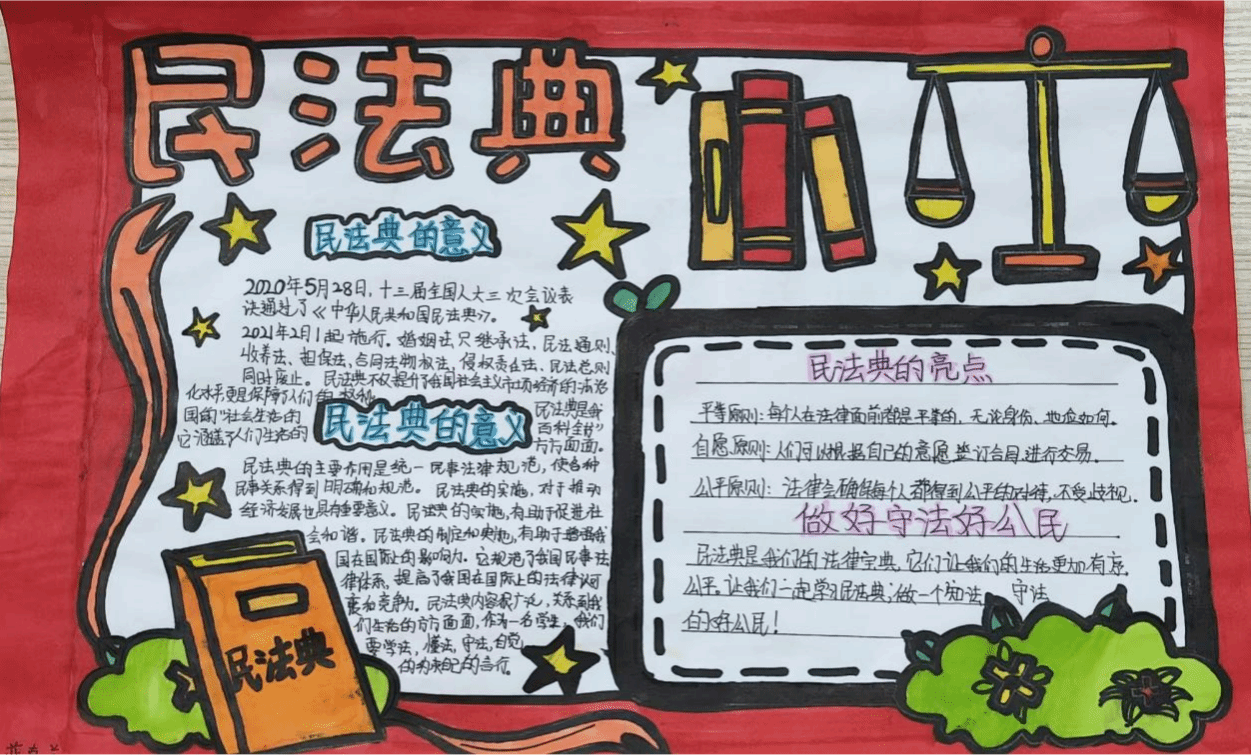 民法典
民法典的意义
2020年5月28日,十三届全国人大三次会议表
决通过了《中华人民共和国民法典》。
2021年2月1起施行。婚姻法、继承法、民法通则、
收养法、担保法、合同法、物权法、侵权责任法、民法总则
同时废止。民法典不仅提升了我国社会主义市场经济的法治
化水平更是保障了人们的权利
民法典是我
国的"社会生活的
百科全书"
它涵盖了人们生活的
方方面面。
民法典的意义
民法典的主要作用是统一民事法律规范,使各种
民事关系得到明确和规范。民法典的实施,对于推动
经济发展也具有重要意义。民法典的实施,有助于促进社
会和谐。民法典的制定和实施,有助于增强我
国在国际上的影响力。它规范了我国民事法
律体系,提高了我国在国际上的法律认可
度和竞争力。民法典内容很广泛,关系到我
们生活的方方面面,作为一名学生,我们
要学法,懂法,守法,自觉
的约束自己的言行。
民法典
民法典的亮点
平等原则:每个人在法律面前都是平等的,无论身份、地位如何。
自愿原则:人们可以根据自己的意愿签订合同,进行交易。
公平原则:法律会确保每个人都得到公平的对待,不受歧视。
做好守法好公民
民法典是我们的法律宝典,它们让我们的生活更加有序
公平。让我们一起学习民法典,做一个知法、守法
的好公民!